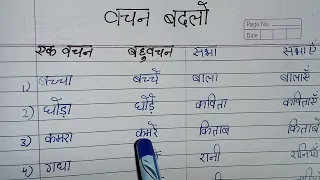 वचन बदलो
Page No.
Date
एक वचन बहुवचन सभा सभाएं
1) बच्चा बच्चे बाला बालाएँ
2) घोड़ा घोड़े कविता कविताएँ
3) कमरा कमरे किताब किताबें
4) गधा रानी रानियाँ